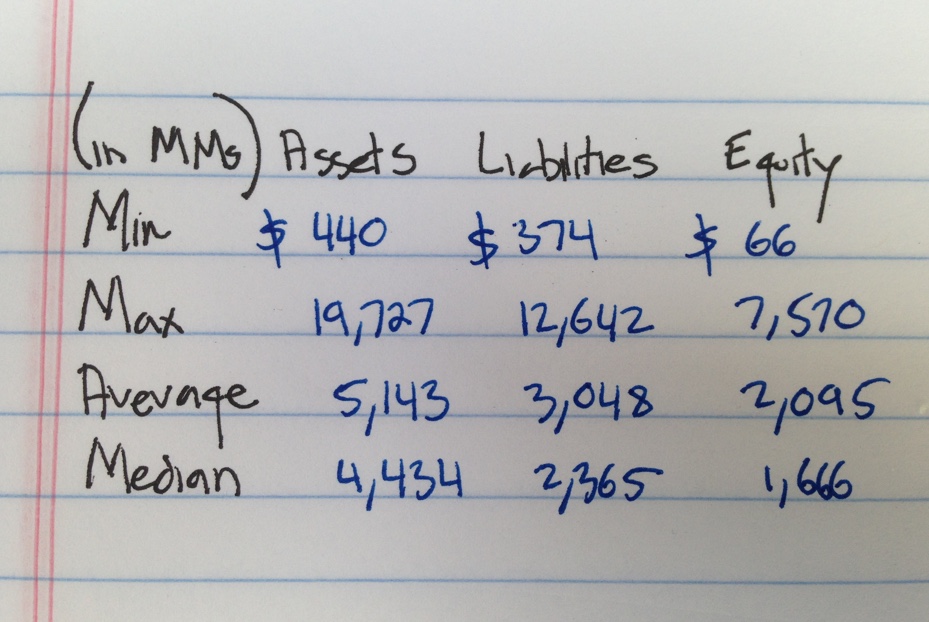 (in MMs) Assets Liabilities Equity
Min $ 440 $ 374 $ 66
Max 19,727 12,642 7,570
Average 5,143 3,048 2,095
Median 4,434 2,365 1,666